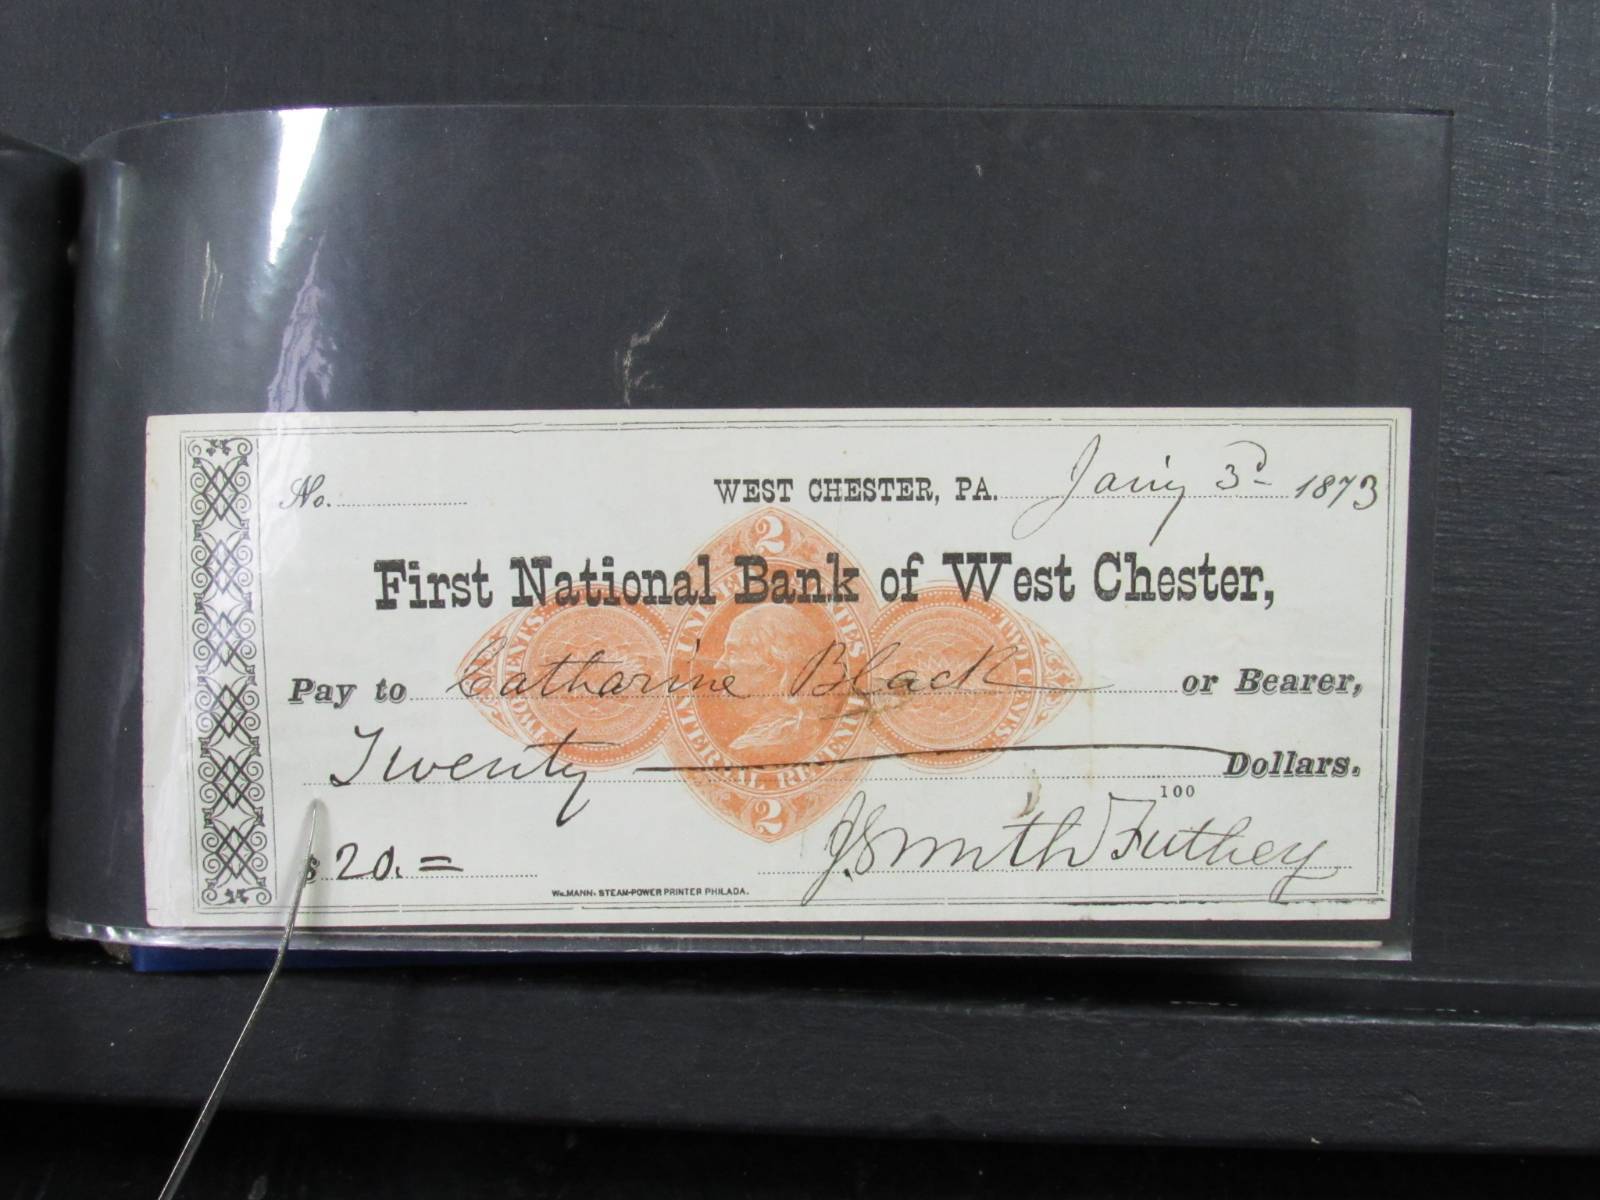 No. WEST CHESTER, PA. Jan'y 3d 1873
2
First National Bank of West Chester,
UNITED STATES
TWO CENTS TWO CENTS
Pay to Catharine Black or Bearer,
INTERNAL REVENUE
Twenty Dollars.
2
100
$ 20. =
J Smith Futhey
WM. MANN, STEAM-POWER PRINTER PHILADA.